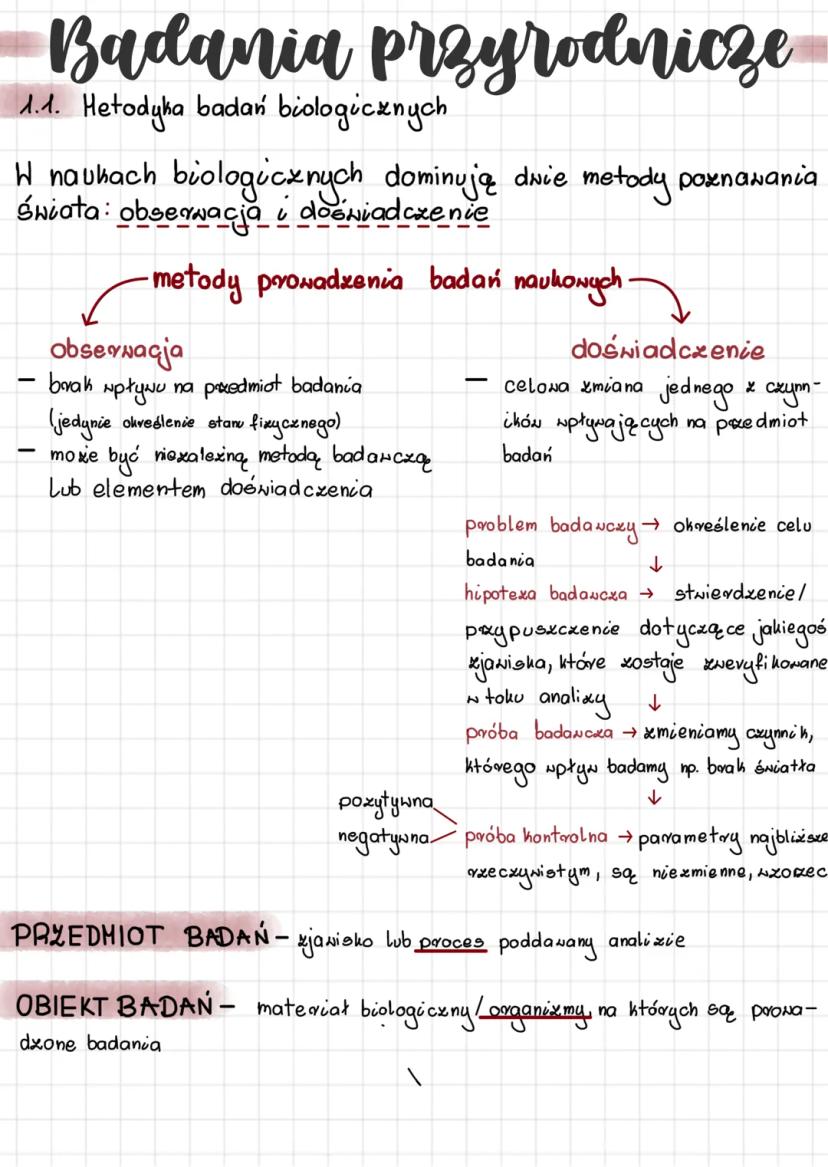 Badania przyrodnicze
1.1. Metodyka badań biologicznych
W naukach biologicznych dominują dwie metody poznawania
świata: obserwacja i doświadczenie
metody prowadzenia badań naukowych
obserwacja
– brak wpływu na przedmiot badania
(jedynie określenie stanu fizycznego)
– może być niezależną metodą badawczą
lub elementem doświadczenia
doświadczenie
– celowa zmiana jednego z czynn-
ików wpływających na przedmiot
badań
problem badawczy → określenie celu
badania ↓
hipoteza badawcza → stwierdzenie/
przypuszczenie dotyczące jakiegoś
zjawiska, które zostaje zweryfikowane
w toku analizy ↓
próba badawcza → zmieniamy czynnik,
którego wpływ badamy np. brak światła
↓
pozytywna
negatywna
próba kontrolna → parametry najbliższe
rzeczywistym, są niezmienne, wzorzec
PRZEDMIOT BADAŃ – zjawisko lub proces poddawany analizie
OBIEKT BADAŃ – materiał biologiczny/organizmy, na których są prowa-
dzone badania